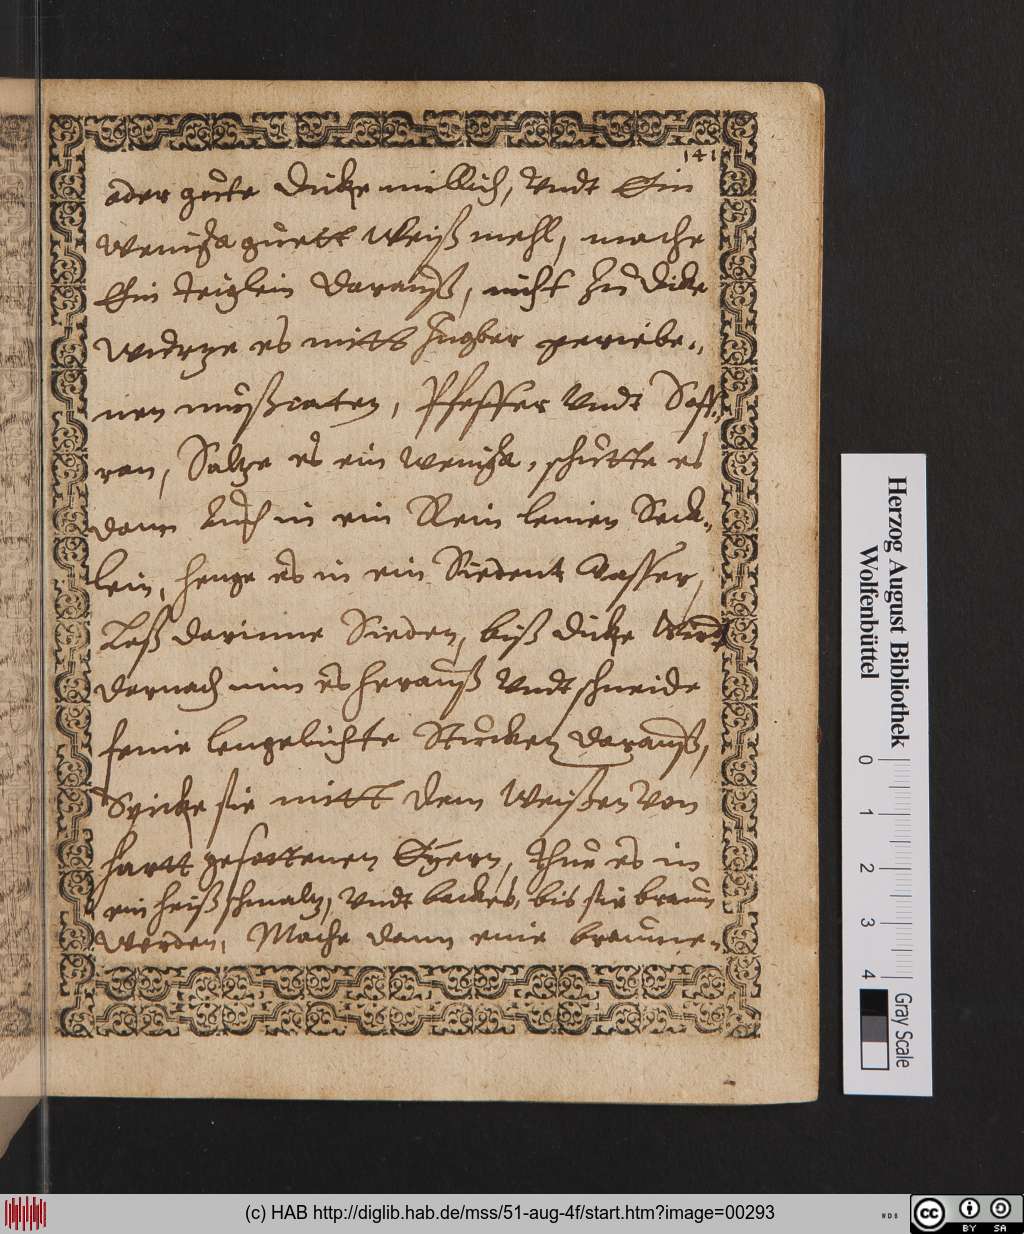 141
oder guete Dicke millich, Vndt Ein
weniga guett Weiß mehl, mache
Ein teiglein darauß, nicht zu dicke
Würtze es mitt Jngber geriebe-,
nen mußcaten, Pfeffer Vndt Saff-,
ran, Saltze es ein weniga, schütte es
dann Auch in ein Rein leinen Seck-,
lein, henge es in ein Siedent Wasser,
Laß darinne Sieden, biß dicke Wirdt
darnach nim es herauß Vndt schneide
feine lengelichte Stücken darauß,
Spicke sie mitt dem Weißen von
hartt gesottenen Eyern, thue es in
ein heiß schmaltz, Vndt backes, bis sie braun
werden, Mache dann eine braune-,
Herzog August Bibliothek
Wolfenbüttel
0 1 2 3 4
Gray Scale
(c) HAB http://diglib.hab.de/mss/51-aug-4f/start.htm?image=00293
WDB
cc BY SA